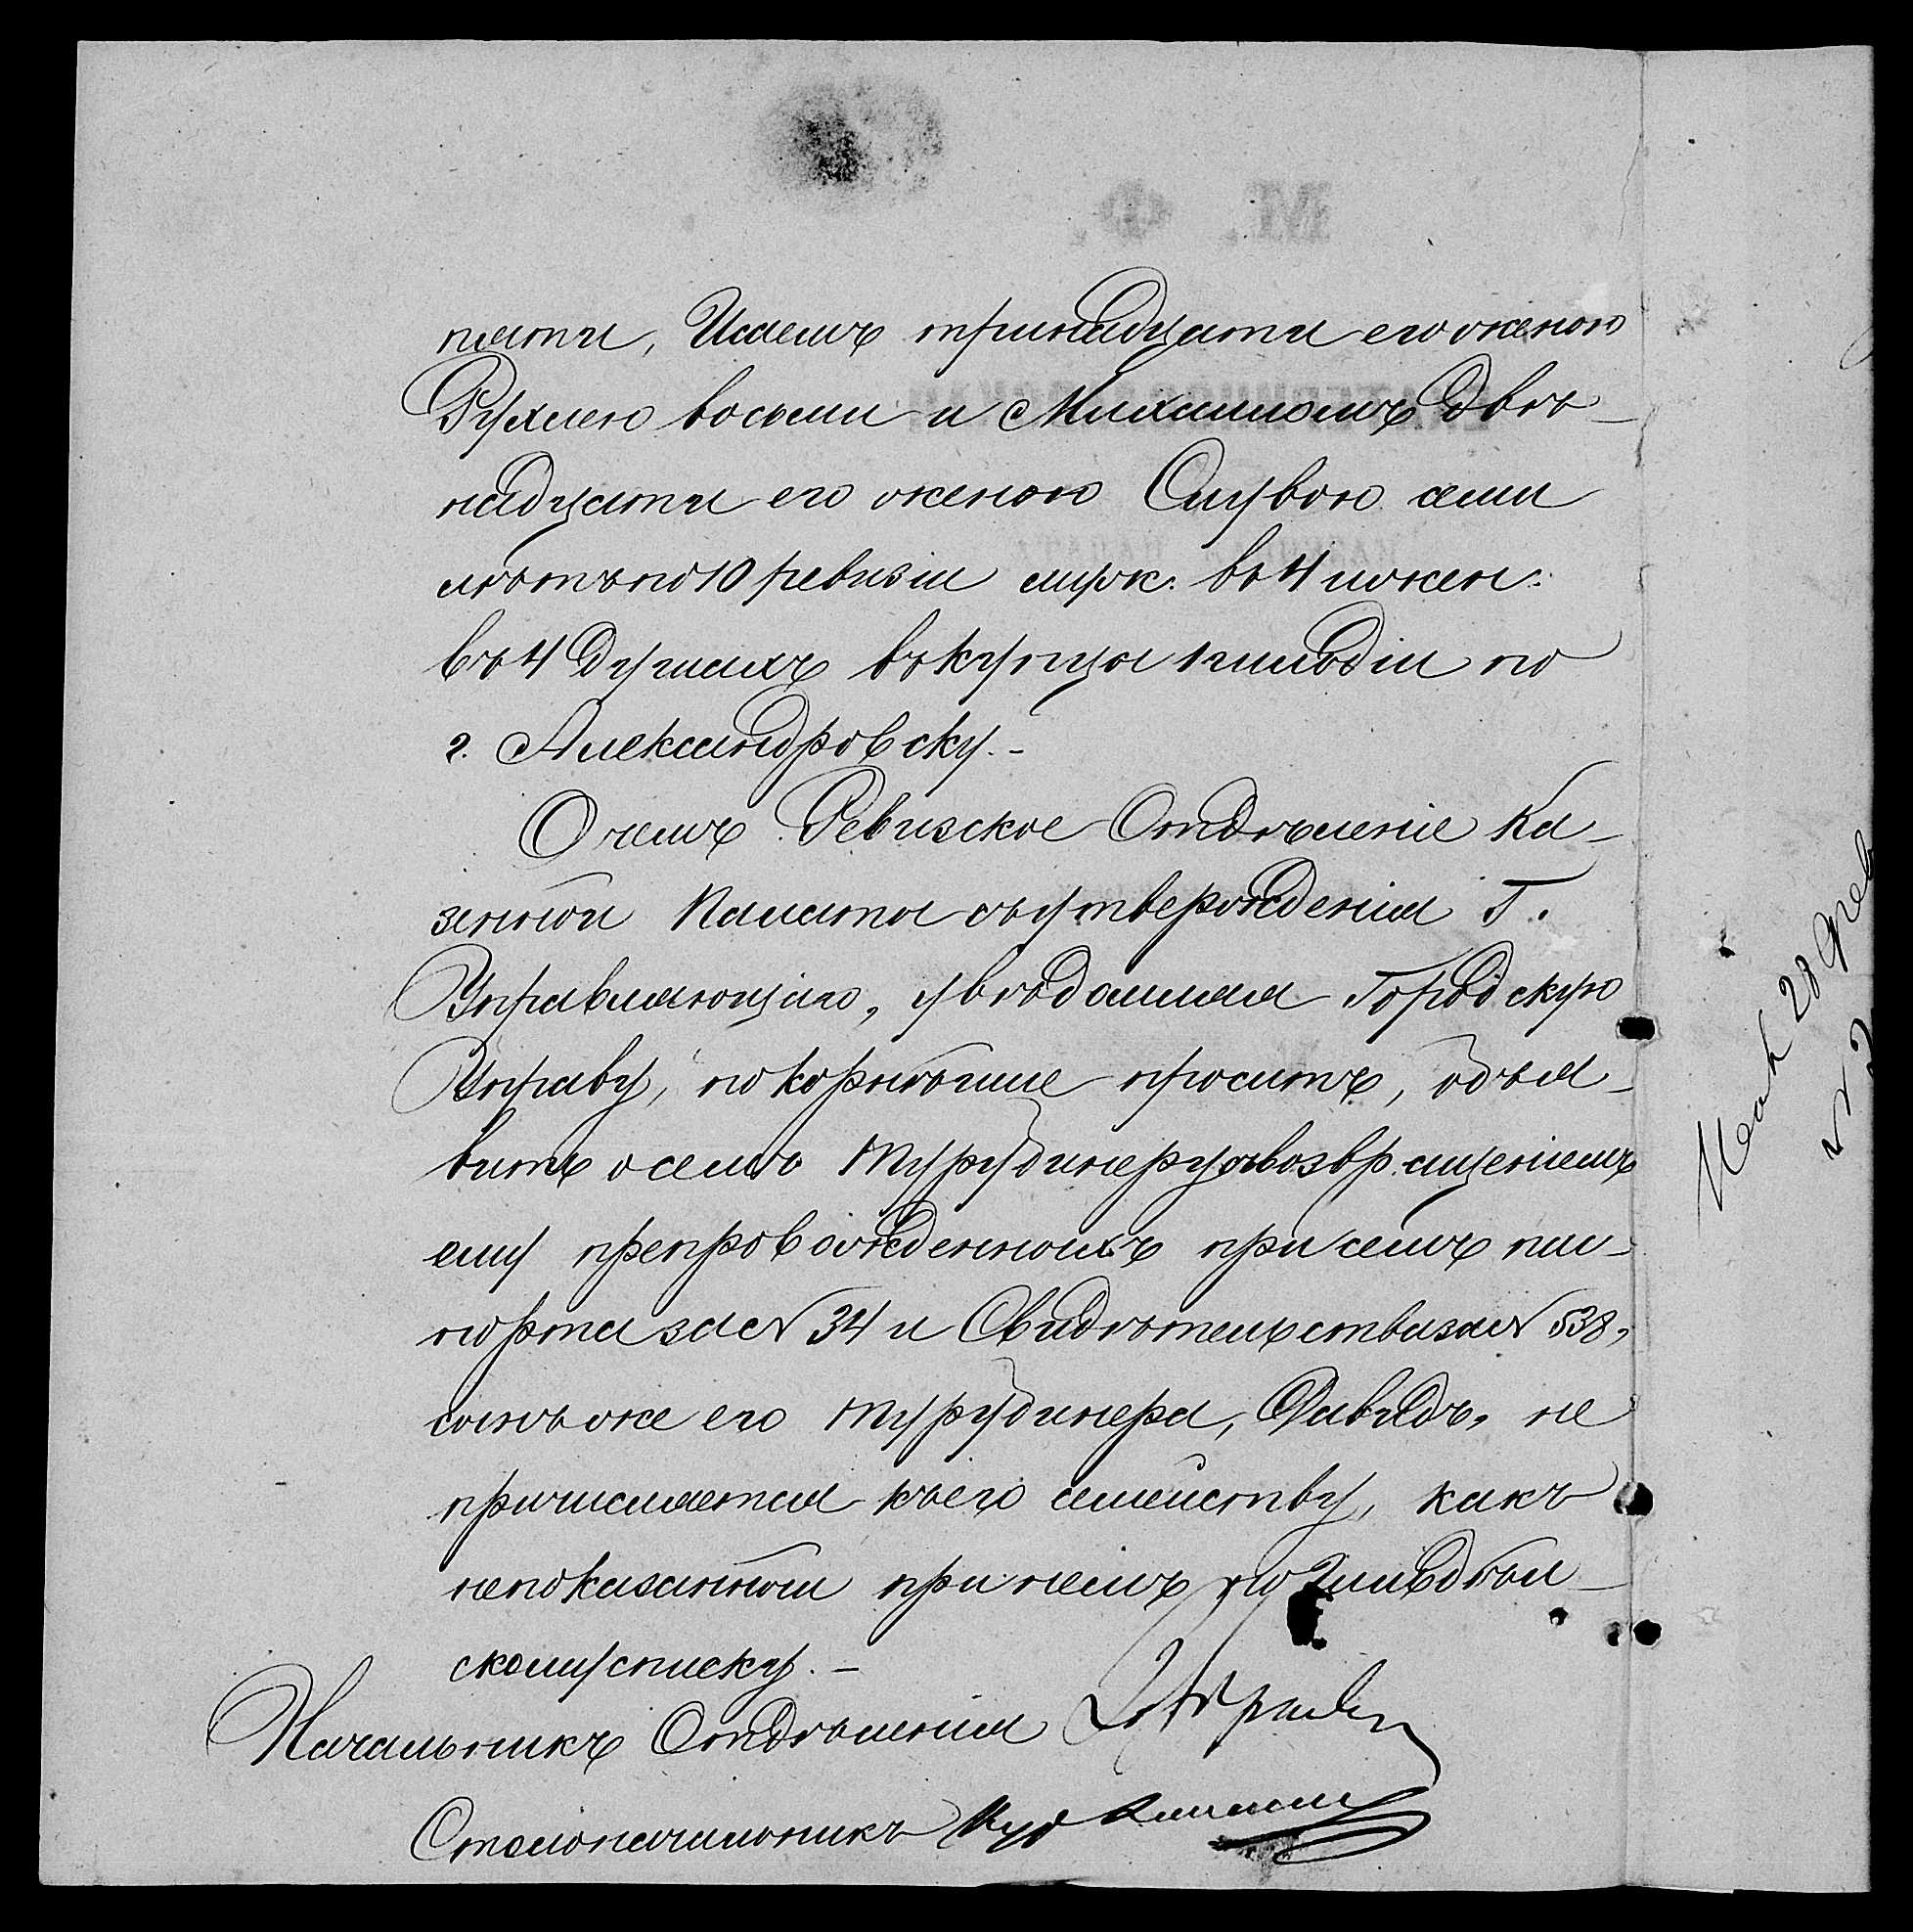 пяти, Исаемъ тринадцати его женою
Рухлею восьми и Михаиломъ двѣ-
надцати его женою Слувою семи
лѣтъ по 10 ревизіи муж. въ 4 и жен.
въ 4 душахъ въ купцы 1 гильдіи по
г. Александровску.-
О чемъ Ревизское Отдѣленіе Ка-
зенной Палаты съ утвержденія Г.
Управляющаго, увѣдомляя Городскую
Управу, покорнѣйше проситъ, объя-
вить о семъ Турубинеру съ возвращеніемъ
ему препровожденныхъ при семъ пас-
порта за № 34 и Свидѣтельства за № 538,
сынъ же его Турубинера, Давидъ, не
причисляется къ его семейству, какъ
непоказанный при немъ по Гильдѣй-
скому списку.-
Начальникъ Отдѣленія
Столоначальникъ
М. Ф.